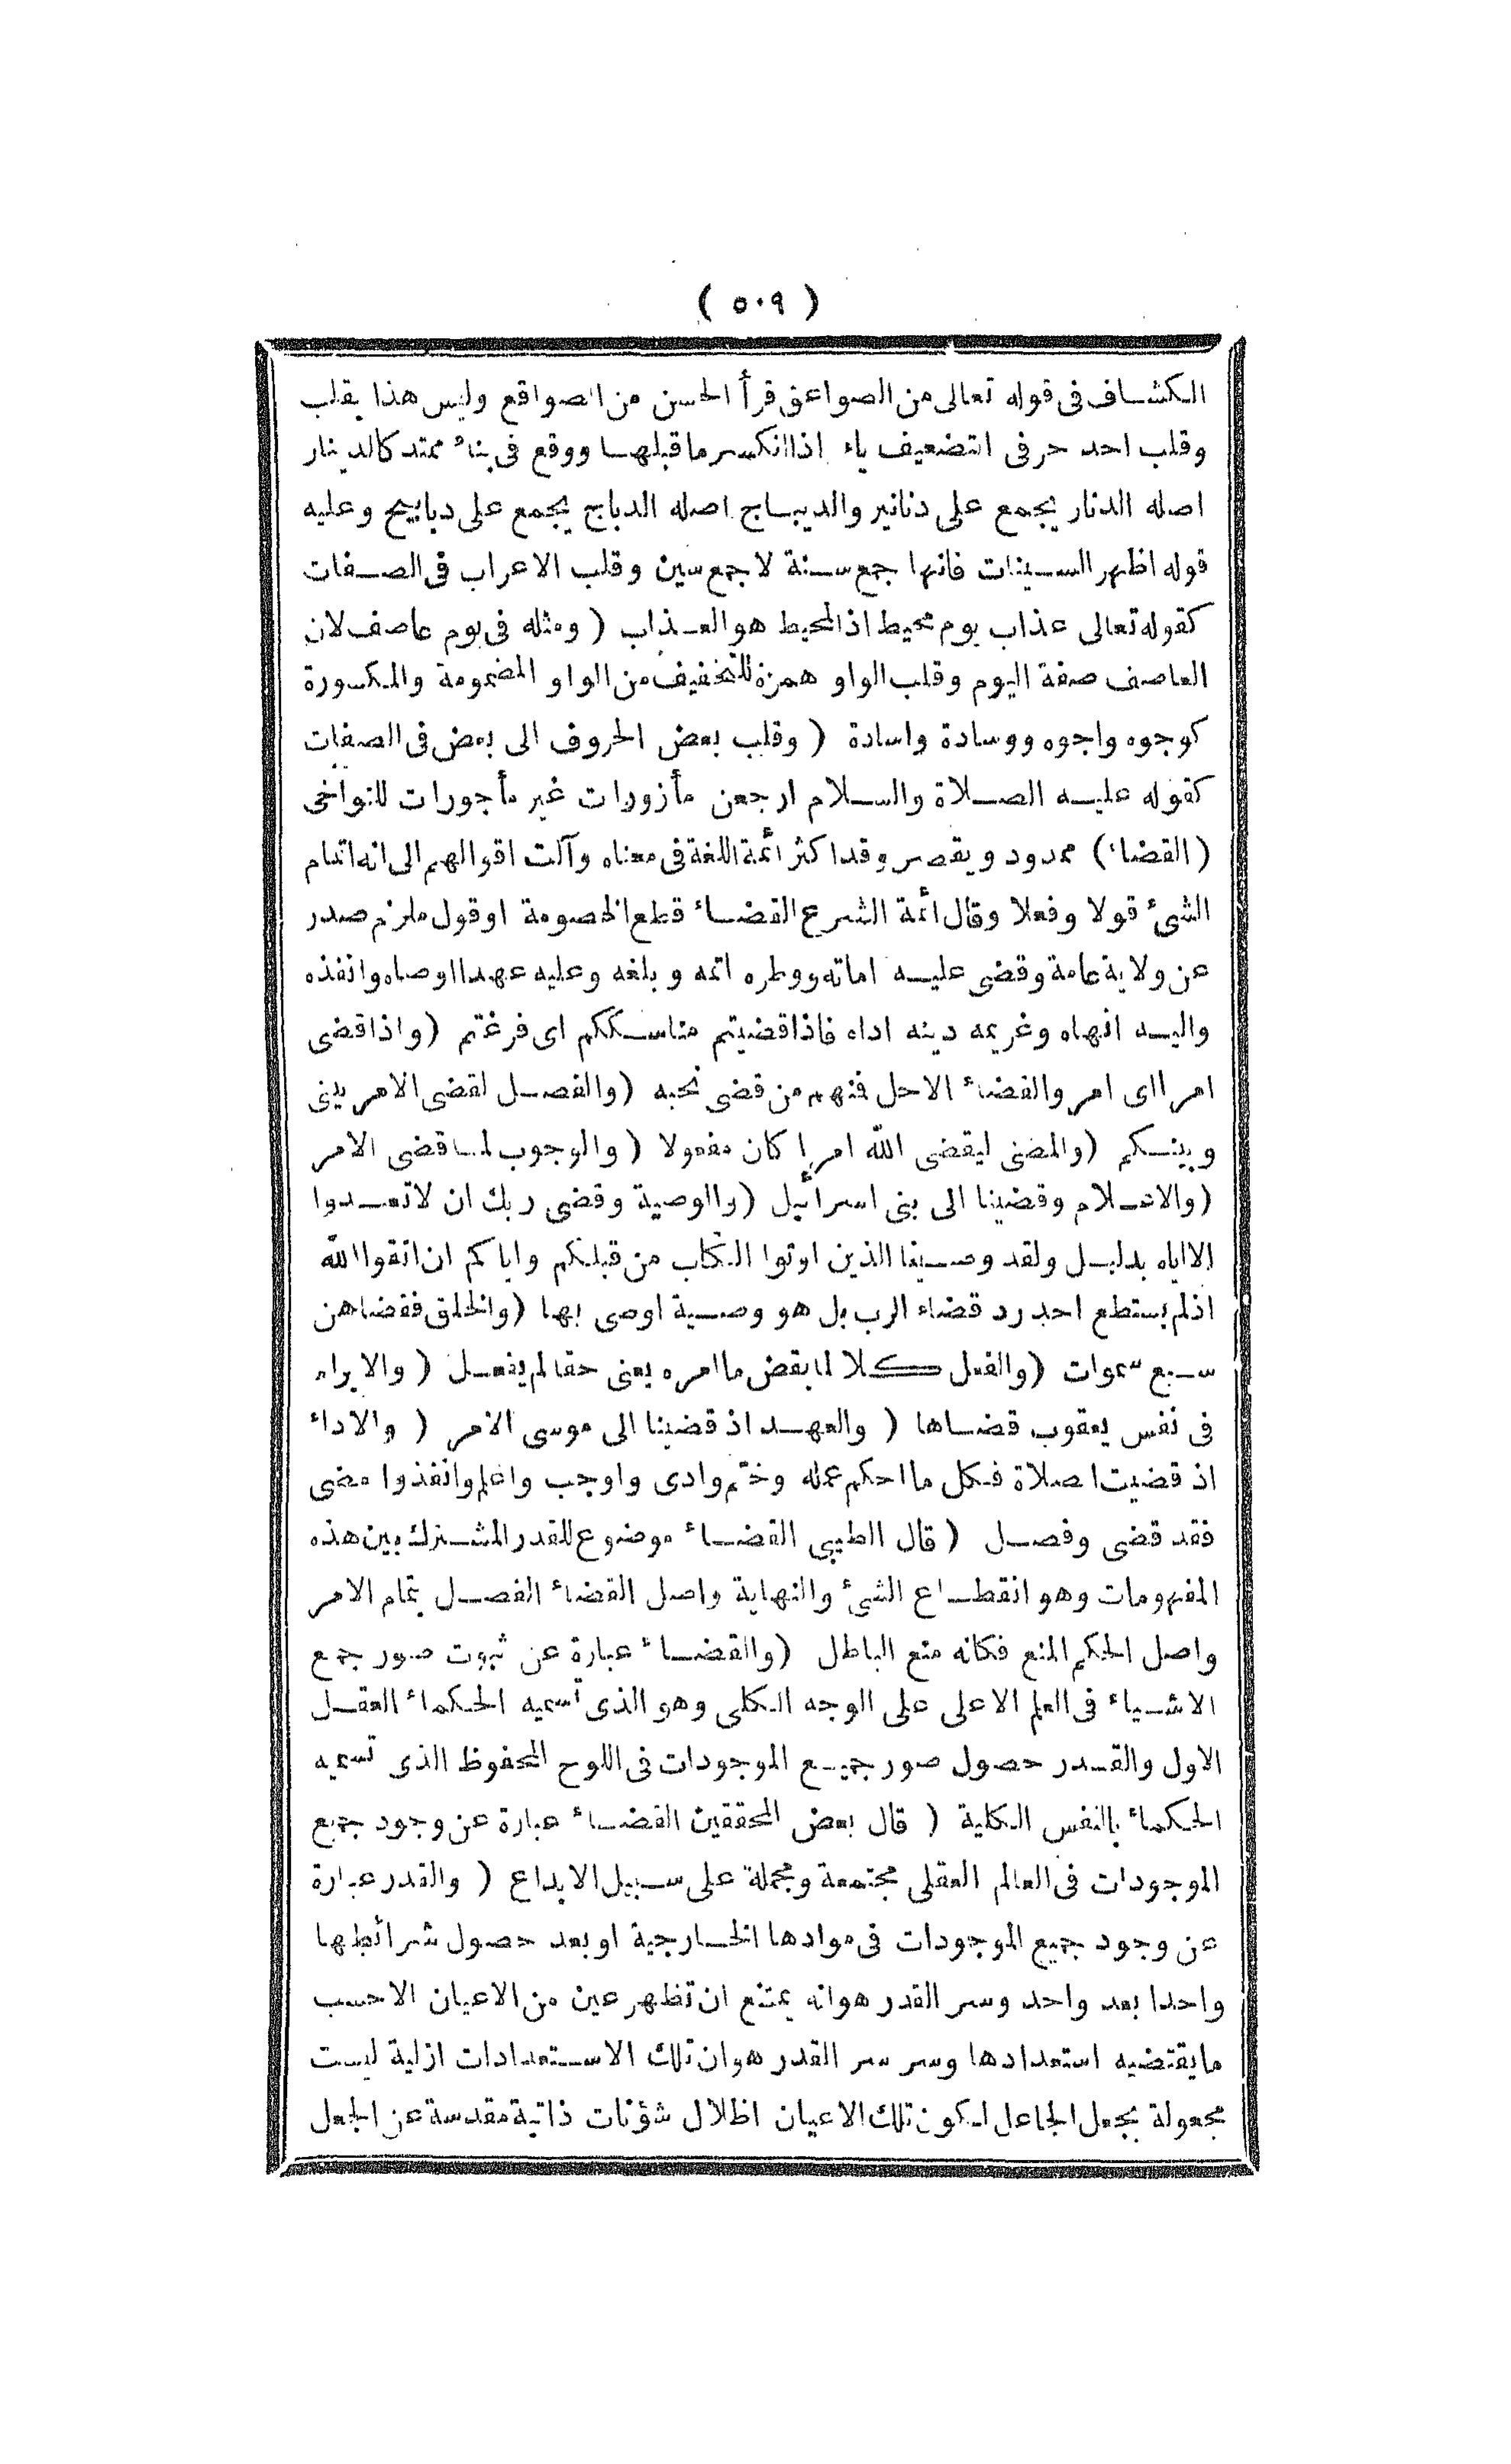 ( ٥٠٩ )
الكشاف فى قوله تعالى من الصواعق قرأ الحسن من الصواقع وليس هذا بقلب
وقلب احد حرفى التضعيف ياء اذا انكسر ما قبلها ووقع فى بناء ممتد كالدينار
اصله الدنار يجمع على دنانير والديباج اصله الدباج يجمع على دبابيج وعليه
قوله اظهر السينات فانها جمع سنة لا جمع سين وقلب الاعراب فى الصفات
كقوله تعالى عذاب يوم محيط اذ المحيط هو العذاب ( ومثله فى يوم عاصف لان
العاصف صفة اليوم وقلب الواو همزة للتخفيف من الواو المضمومة والمكسورة
كوجوه واجوه ووسادة واسادة ( وقلب بعض الحروف الى بعض فى الصفات
كقوله عليه الصلاة والسلام ارجعن مأزورات غير مأجورات للتواخى
( القضاء ) ممدود ويقصر وقد اكثر ائمة اللغة فى معناه وآلت اقوالهم الى انه اتمام
الشئ قولا وفعلا وقال ائمة الشرع القضاء قطع الخصومة او قول ملزم صدر
عن ولاية عامة وقضى عليه اماته ووطره اتمه وبلغه وعليه عهدا اوصاه وانفذه
واليه انهاه وغريمه دينه اداه فاذا قضيتم مناسككم اى فرغتم ( واذا قضى
امرا اى امر والقضاء الاجل فمنهم من قضى نحبه ( والفصل لقضى الامر بينى
وبينكم ( والمضى ليقضى الله امرا كان مفعولا ( والوجوب لما قضى الامر
( والاعلام وقضينا الى بنى اسرائيل ( والوصية وقضى ربك ان لا تعبدوا
الا اياه بدليل ولقد وصينا الذين اوتوا الكتاب من قبلكم واياكم ان اتقوا الله
اذ لم يستطع احد رد قضاء الرب بل هو وصية اوصى بها ( والخلق فقضاهن
سبع سموات ( والفعل كلا لما يقض ما امره يعنى حقا لم يفعل ( والابرام
فى نفس يعقوب قضاها ( والعهد اذ قضينا الى موسى الامر ( والاداء
اذ قضيت الصلاة فكل ما احكم عمله وختم وادى واوجب واعلم وانفذ وامضى
فقد قضى وفصل ( قال الطيبى القضاء موضوع للقدر المشترك بين هذه
المفهومات وهو انقطاع الشئ والنهاية واصل القضاء الفصل بتمام الامر
واصل الحكم المنع فكانه منع الباطل ( والقضاء عبارة عن ثبوت صور جمع
الاشياء فى العلم الاعلى على الوجه الكلى وهو الذى تسميه الحكماء العقل
الاول والقدر حصول صور جميع الموجودات فى اللوح المحفوظ الذى تسميه
الحكماء بالنفس الكلية ( قال بعض المحققين القضاء عبارة عن وجود جميع
الموجودات فى العالم العقلى مجتمعة ومجملة على سبيل الابداع ( والقدر عبارة
عن وجود جميع الموجودات فى موادها الخارجية او بعد حصول شرائطها
واحدا بعد واحد وسر القدر هو انه يمتنع ان تظهر عين من الاعيان الا حسب
ما يقتضيه استعدادها وسر سر القدر هو ان تلك الاستعدادات ازلية ليست
مجعولة بجعل الجاعل لكون تلك الاعيان اظلال شؤنات ذاتية مقدسة عن الجعل